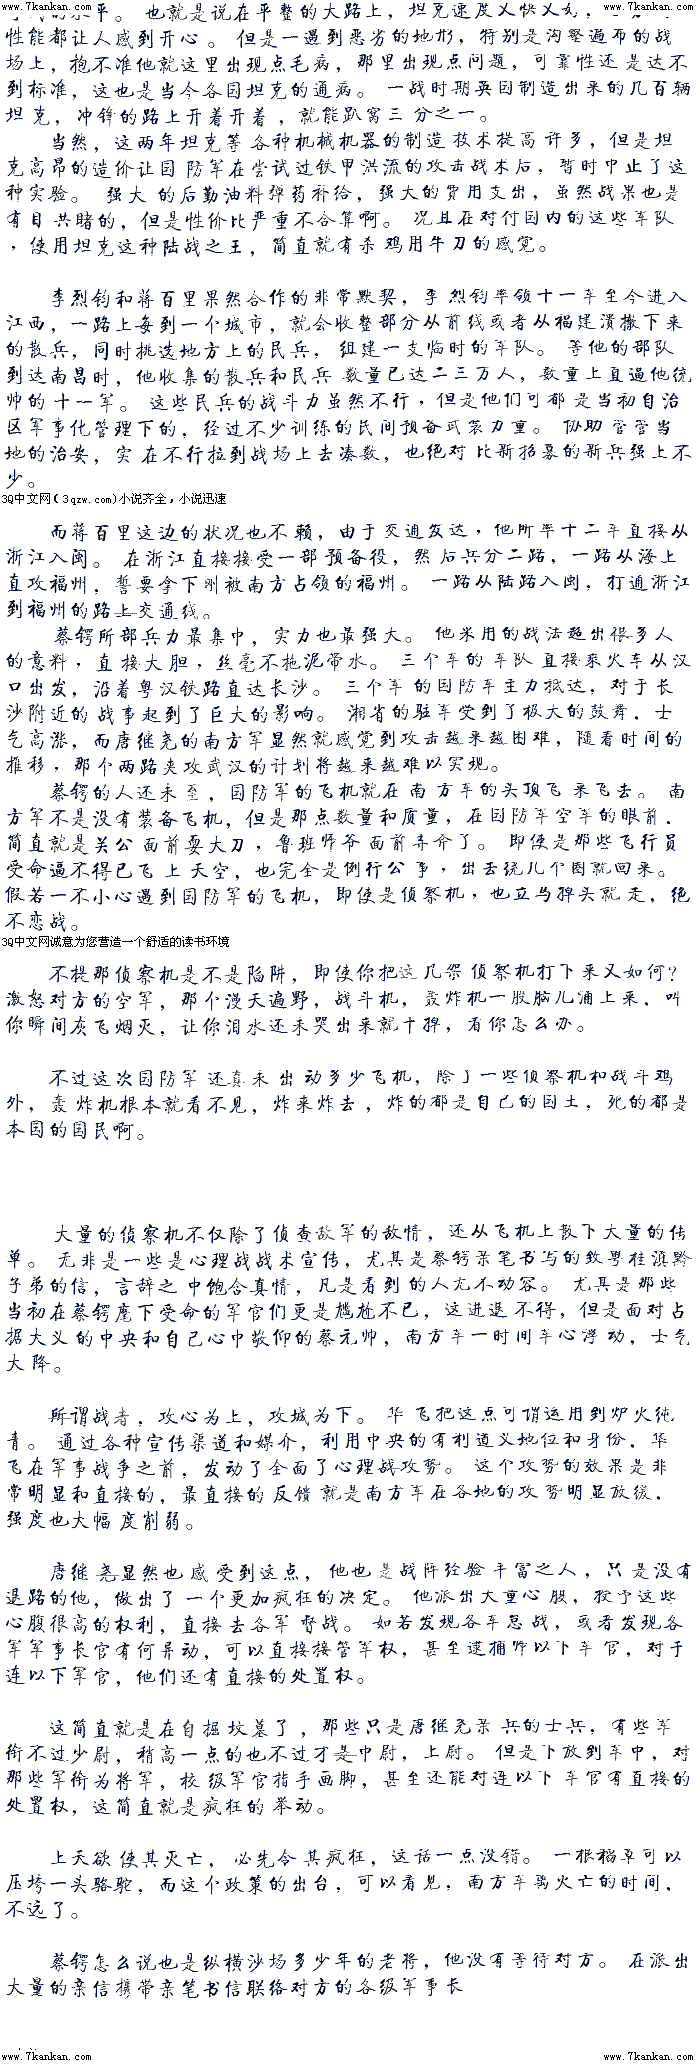 www.7kankan.com www.7kankan.com
的水平。 也就是说在平整的大路上，坦克速度又快又好，
性能都让人感到开心。 但是一遇到恶劣的地形，特别是沟壑遍布的战
场上，抱不准他就这里出现点毛病，那里出现点问题，可靠性还是达不
到标准，这也是当今各国坦克的通病。 一战时期英国制造出来的几百辆
坦克，冲锋的路上开着开着，就能趴窝三分之一。
当然，这两年坦克等各种机械机器的制造技术提高许多，但是坦
克高昂的造价让国防军在尝试过铁甲洪流的攻击战术后，暂时中止了这
种实验。 强大的后勤油料弹药补给，强大的费用支出，虽然战果也是
有目共睹的，但是性价比严重不合算啊。 况且在对付国内的这些军队
，使用坦克这种陆战之王，简直就有杀鸡用牛刀的感觉。
李烈钧和蒋百里果然合作的非常默契，李烈钧率领十一军至今进入
江西，一路上每到一个城市，就会收整部分从前线或者从福建溃撤下来
的散兵，同时挑选地方上的民兵，组建一支临时的军队。 等他的部队
到达南昌时，他收集的散兵和民兵数量已达二三万人，数量上直逼他统
帅的十一军。 这些民兵的战斗力虽然不行，但是他们可都是当初自治
区军事化管理下的，经过不少训练的民间预备武装力量。 协助管管当
地的治安，实在不行拉到战场上去凑数，也绝对比新招募的新兵强上不
少。
3Q中文网(3qzw.com)小说齐全，小说迅速
而蒋百里这边的状况也不赖，由于交通发达，他所率十二军直接从
浙江入闽。 在浙江直接接受一部预备役，然后兵分二路，一路从海上
直攻福州，誓要拿下刚被南方占领的福州。 一路从陆路入闽，打通浙江
到福州的路上交通线。
蔡锷所部兵力最集中，实力也最强大。 他采用的战法超出很多人
的意料，直接大胆，丝毫不拖泥带水。 三个军的军队直接乘火车从汉
口出发，沿着粤汉铁路直达长沙。 三个军的国防军主力抵达，对于长
沙附近的战事起到了巨大的影响。 湘省的驻军受到了极大的鼓舞，士
气高涨，而唐继尧的南方军显然就感觉到攻击越来越困难，随着时间的
推移，那个两路夹攻武汉的计划将越来越难以实现。
蔡锷的人还未至，国防军的飞机就在南方军的头顶飞来飞去。 南
方军不是没有装备飞机，但是那点数量和质量，在国防军空军的眼前，
简直就是关公面前耍大刀，鲁班师爷面前弄斧了。 即使是那些飞行员
受命逼不得已飞上天空，也完全是例行公事，出去绕几个圈就回来。
假若一不小心遇到国防军的飞机，即使是侦察机，也立马掉头就走，绝
不恋战。
3Q中文网诚意为您营造一个舒适的读书环境
不提那侦察机是不是陷阱，即使你把这几架侦察机打下来又如何？
激怒对方的空军，那个漫天遍野，战斗机，轰炸机一股脑儿涌上来，叫
你瞬间灰飞烟灭，让你泪水还未哭出来就干掉，看你怎么办。
不过这次国防军还真未出动多少飞机，除了一些侦察机和战斗鸡
外，轰炸机根本就看不见，炸来炸去，炸的都是自己的国土，死的都是
本国的国民啊。
大量的侦察机不仅除了侦查敌军的敌情，还从飞机上散下大量的传
单。 无非是一些是心理战战术宣传，尤其是蔡锷亲笔书写的致粤桂滇黔
子弟的信，言辞之中饱含真情，凡是看到的人尤不动容。 尤其是那些
当初在蔡锷麾下受命的军官们更是尴尬不已，这进退不得，但是面对占
据大义的中央和自己心中敬仰的蔡元帅，南方军一时间军心浮动，士气
大降。
所谓战者，攻心为上，攻城为下。 华飞把这点可谓运用到炉火纯
青。 通过各种宣传渠道和媒介，利用中央的有利道义地位和身份，华
飞在军事战争之前，发动了全面了心理战攻势。 这个攻势的效果是非
常明显和直接的，最直接的反馈就是南方军在各地的攻势明显放缓，
强度也大幅度削弱。
唐继尧显然也感受到这点，他也是战阵经验丰富之人，只是没有
退路的他，做出了一个更加疯狂的决定。 他派出大量心腹，授予这些
心腹很高的权利，直接去各军督战。 如若发现各军怠战，或者发现各
军军事长官有何异动，可以直接接管军权，甚至逮捕师以下军官，对于
连以下军官，他们还有直接的处置权。
这简直就是在自掘坟墓了，那些只是唐继尧亲兵的士兵，有些军
衔不过少尉，稍高一点的也不过才是中尉，上尉。 但是下放到军中，对
那些军衔为将军，校级军官指手画脚，甚至还能对连以下军官有直接的
处置权，这简直就是疯狂的举动。
上天欲使其灭亡，必先令其疯狂，这话一点没错。 一根稻草可以
压垮一头骆驼，而这个政策的出台，可以看见，南方军离灭亡的时间，
不远了。
蔡锷怎么说也是纵横沙场多少年的老将，他没有等待对方。 在派出
大量的亲信携带亲笔书信联络对方的各级军事长
www.7kankan.com www.7kankan.com